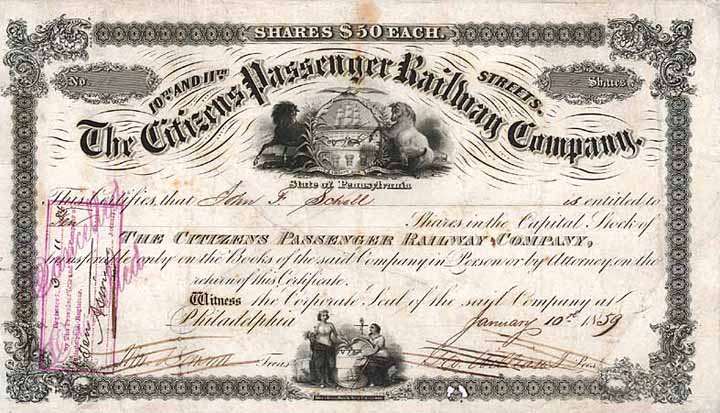 SHARES $50 EACH.
No
Shares
10TH AND 11TH STREETS.
The Citizens Passenger Railway Company.
State of Pennsylvania
This Certifies, that John F. Scholl is entitled to
Ten Shares in the Capital Stock of
THE CITIZENS PASSENGER RAILWAY COMPANY,
transferable only on the Books of the said Company in Person or by Attorney, on the
return of this Certificate.
Witness the Corporate Seal of the said Company at
Philadelphia January 10th 1859
Treas
Pres
Cancelled